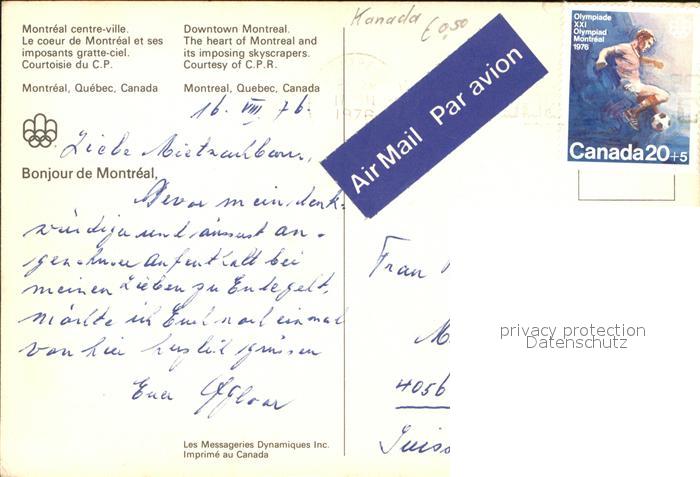 Montréal centre-ville.
Le coeur de Montréal et ses
imposants gratte-ciel.
Courtoisie du C.P.
Montréal, Québec, Canada
Downtown Montreal.
The heart of Montreal and
its imposing skyscrapers.
Courtesy of C.P.R.
Montreal, Quebec, Canada
Kanada
€ 0,50
Air Mail Par avion
Olympiade
XXI
Olympiad
Montréal
1976
Canada 20+5
1976
16. VIII 76.
Liebe
Bonjour de Montréal,
Bevor mein denk-
würdiger und äussert an-
genehmer Aufenthalt bei
meinen Lieben zu Ende geht,
möchte ich Euch noch einmal
von hier herzlich grüssen
Euer
Frau
M
4056
Suiss
privacy protection
Datenschutz
Les Messageries Dynamiques Inc.
Imprimé au Canada